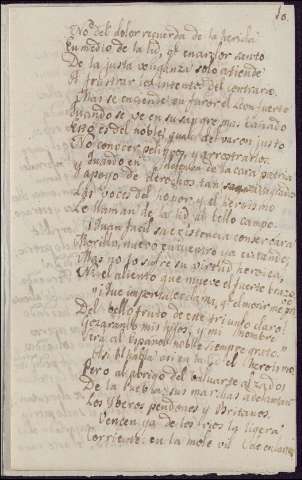 10.
No del dolor recuerda de la herida
En medio de la lid, qe en ardor santo
De la justa venganza solo atiende
A frustrar los intentos del contrario.
Mas se enciende su furor el Leon fuerte
Quando se ve en su sangre mas bañado
Eso es del noble, qual del varon justo
No conocer peligros, y arrostrarlos.
Y quando en defensa de la cara patria
Y apoyo de derechos tan sagrados
Las voces del honor, y el heroismo
Le llaman de la lid al bello campo.
Quan facil su existencia conservara
Morillo, nuevo en
Mas no lo sufre su virtud heroica,
Ni el aliento que mueve el fuerte brazo
¿Que importa, exclama, qe el morir me prive
Del bello fruto de este triunfo claro?
Gozaranlo mis hijos, y mi nombre
Será al Español noble siempre grato.
Asi habla en la lid el heroismo
Pero al abrigo del baluarte alzado
De la Puebla sus marchas adelantan
Los Yberos pendones y Britanos.
Vencen ya de los rios la ligera
Corriente: en la mole